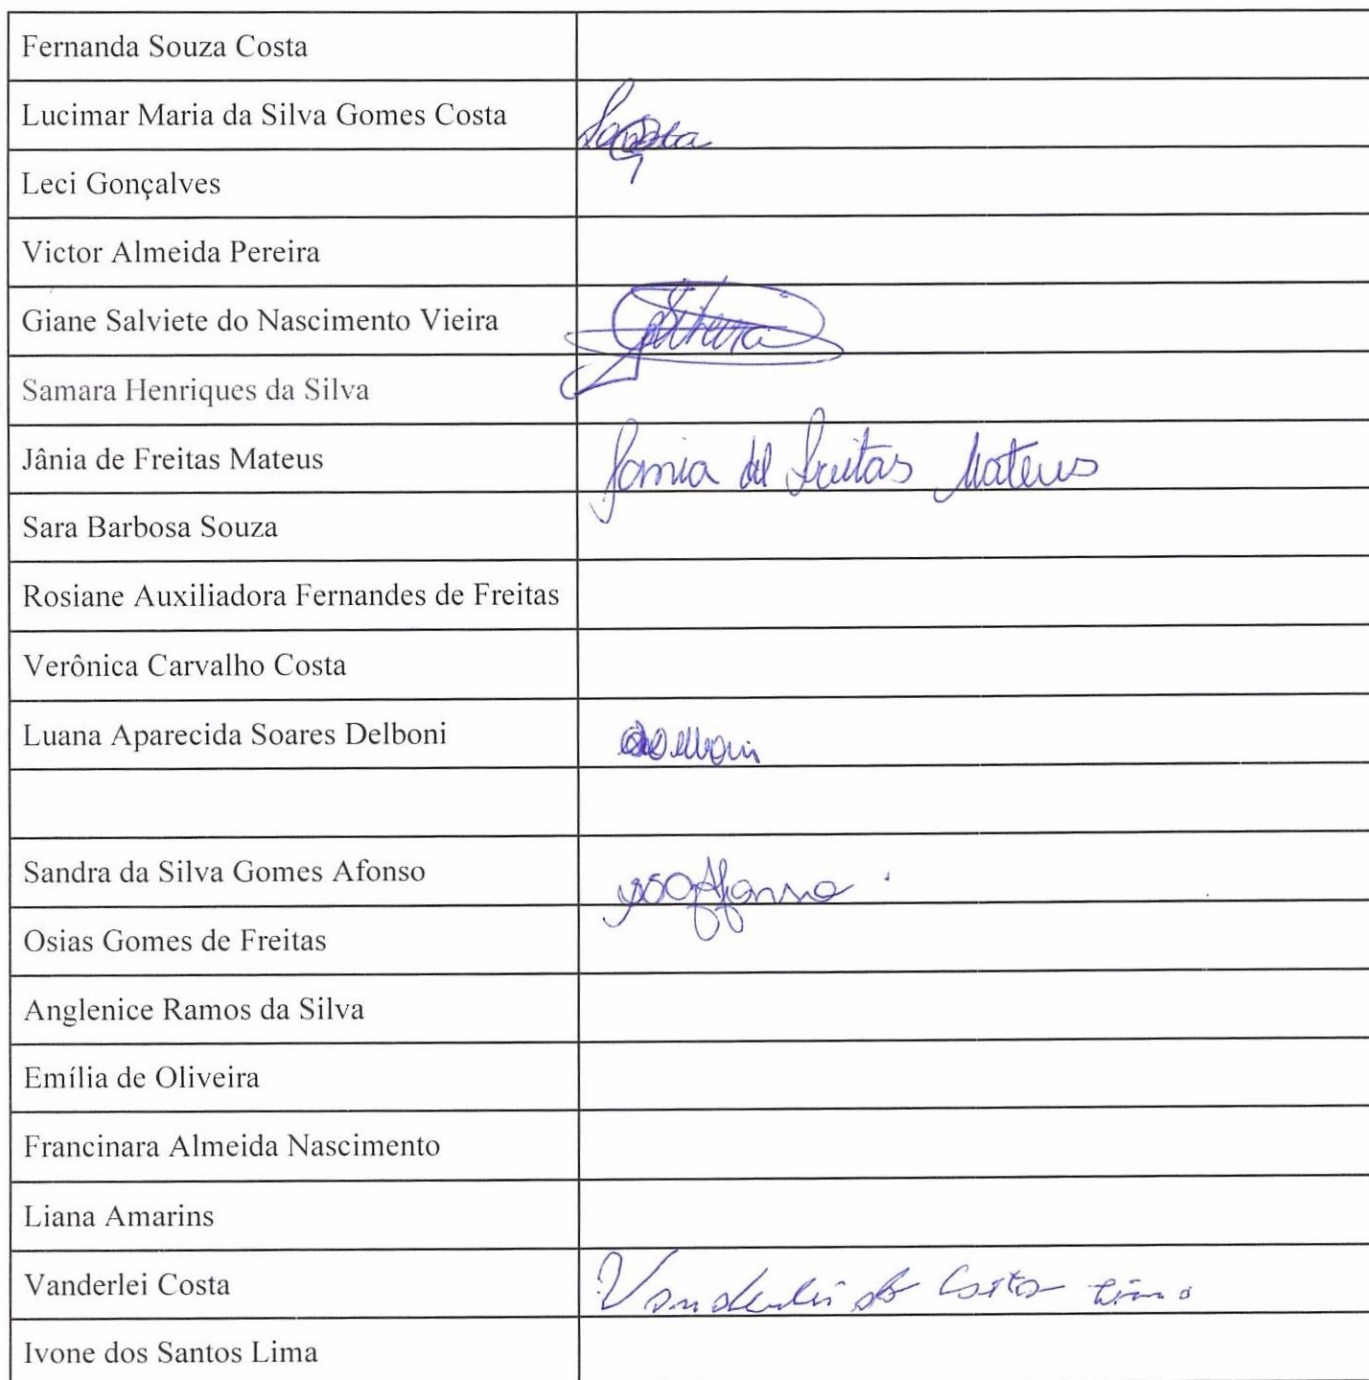 Fernanda Souza Costa
Lucimar Maria da Silva Gomes Costa
Leci Gonçalves
Victor Almeida Pereira
Giane Salviete do Nascimento Vieira
Samara Henriques da Silva
Jânia de Freitas Mateus Jania de Freitas Mateus
Sara Barbosa Souza
Rosiane Auxiliadora Fernandes de Freitas
Verônica Carvalho Costa
Luana Aparecida Soares Delboni
Sandra da Silva Gomes Afonso
Osias Gomes de Freitas
Anglenice Ramos da Silva
Emília de Oliveira
Francinara Almeida Nascimento
Liana Amarins
Vanderlei Costa Vanderlei da Costa Lima
Ivone dos Santos Lima